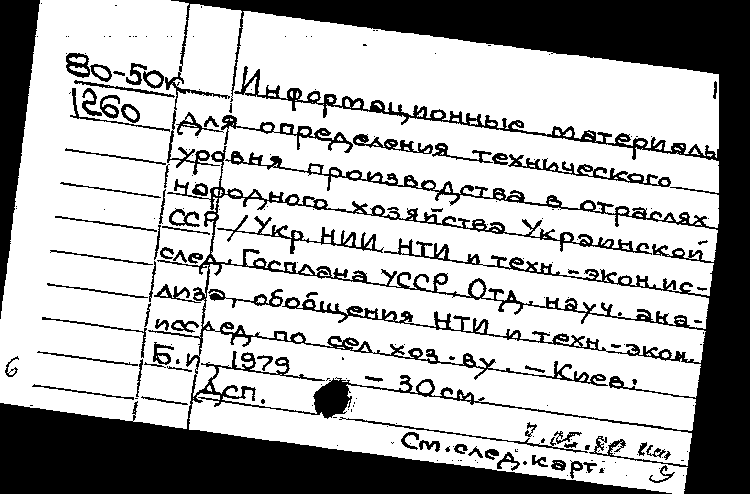 80-50к Информационные материалы
1260 для определения технического
уровня производства в отраслях
народного хозяйства Украинской
ССР / Укр. НИИ НТИ и техн.-экон. ис-
след. Госплана УССР, Отд. науч. ана-
лиза, обобщения НТИ и техн.-экон.
исслед. по сел. хоз-ву. - Киев:
Б.и, 1979. - 30 см.
6
Дсп.
7.05.80
См. след. карт.